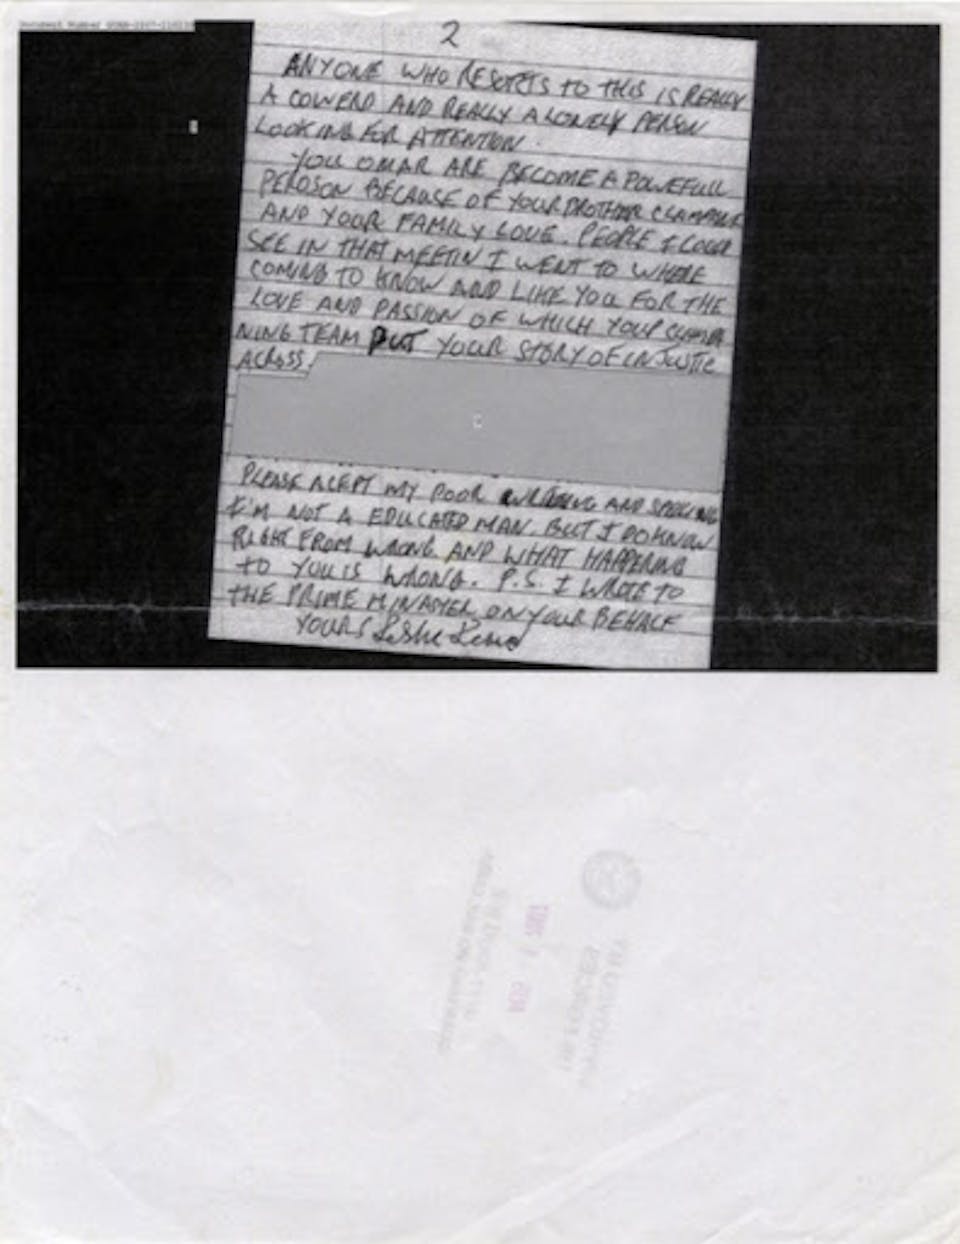 2
ANYONE WHO RESORTS TO THIS IS REALLY
A COWERD AND REALLY A LONELY PERSON
LOOKING FOR ATTENTION.
YOU OMAR ARE BECOME A POWEFULL
PEROSON BECAUSE OF YOUR BROTHER
AND YOUR FAMILY LOVE. PEOPLE I COULD
SEE IN THAT MEETIN I WENT TO WHERE
COMING TO KNOW AND LIKE YOU FOR THE
LOVE AND PASSION OF WHICH YOUR
NING TEAM PUT YOUR STORY OF INJUSTIC
ACROSS.
C
PLEASE ACEPT MY POOR WRITEING AND
I'M NOT A EDUCATED MAN. BUT I DO KNOW
RIGHT FROM WRONG. AND WHAT HAPPERING
TO YOU IS WRONG. P.S. I WROTE TO
THE PRIME MINASTER ON YOUR BEHALF
YOURS